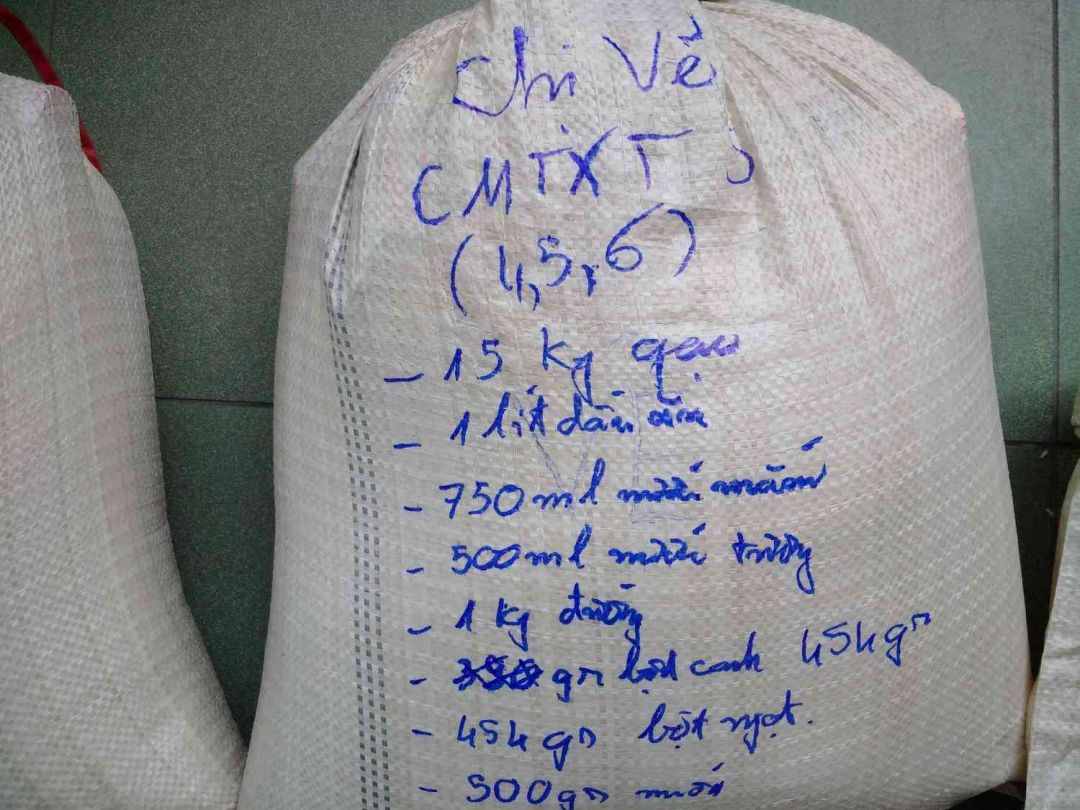 Chị Vẻ
CMTXT3
(4,5,6)
- 15 kg gạo
- 1 lít dầu ăn
- 750ml nước mắm
- 500ml nước tương
- 1 kg đường
- gr bột canh 454gr
- 454gr bột ngọt.
- 500gr muối